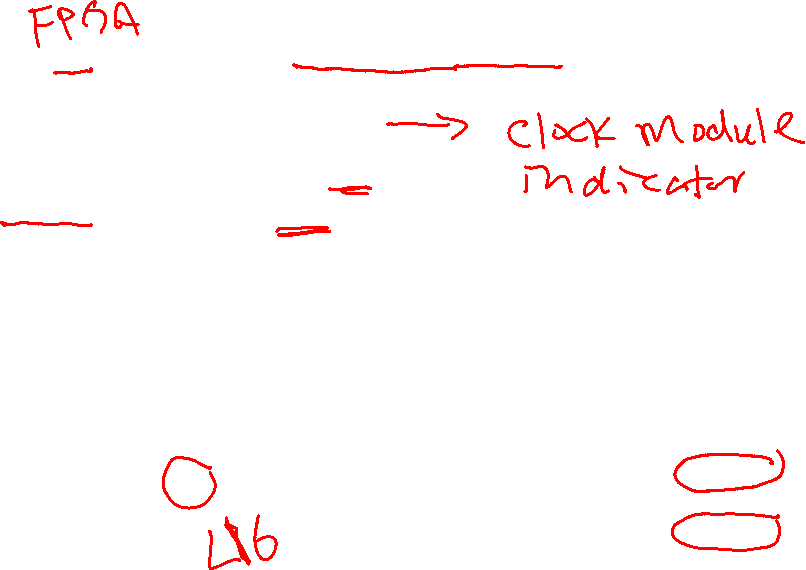 FPGA
→ clock module
indicator